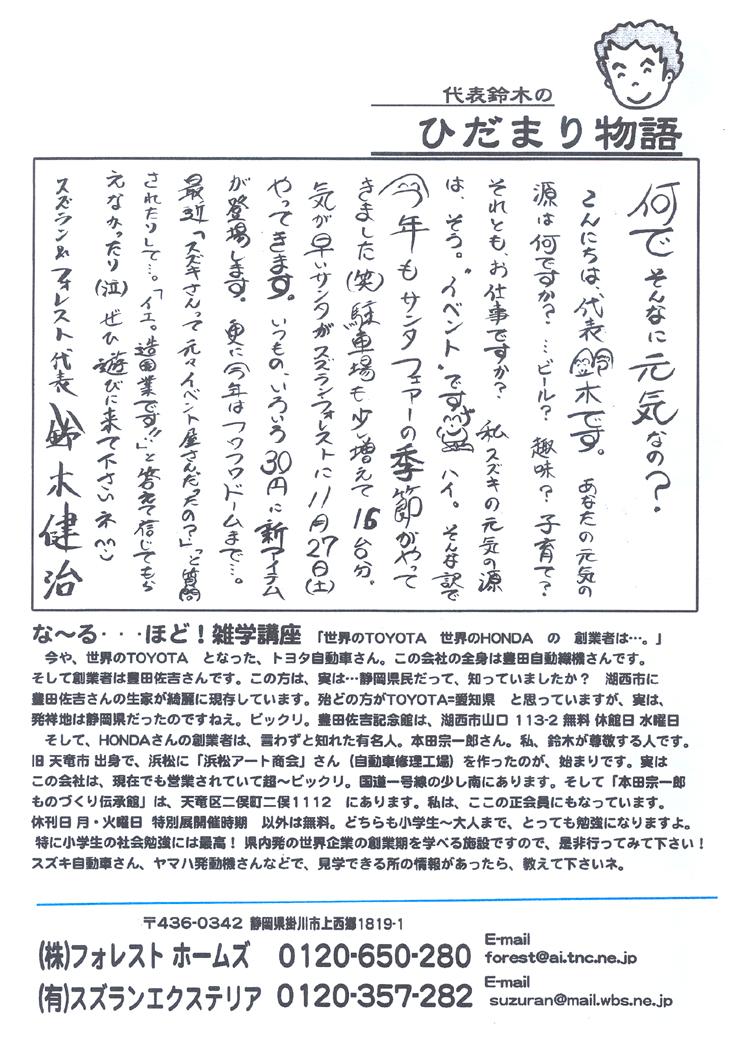 代表鈴木の
ひだまり物語
何でそんなに元気なの?
こんにちは、代表鈴木です。 あなたの元気の
源は何ですか? …ビール? 趣味? 子育て?
それとも、お仕事ですか? 私スズキの元気の源
は、そう。“イベント”です ハイ。そんな訳で
今年もサンタフェアーの季節がやって
きました(笑)駐車場も少し増えて16台分。
気が早いサンタがスズランフォレストに11月27日(土)
やってきます。いつもの、いろいろ30円に新アイテム
が登場します。更に今年はフワフワドームまで…。
最近「スズキさんって元々イベント屋さんだったの?」っと質問
されたりして…。「イエ。造園業です!!」と答えて信じてもら
えなかったり(泣)ぜひ遊びに来て下さいネ
スズラン&フォレスト代表 鈴木健治
な~る・・・ほど!雑学講座 「世界のTOYOTA 世界のHONDA の 創業者は…。」
今や、世界のTOYOTA となった、トヨタ自動車さん。この会社の全身は豊田自動織機さんです。
そして創業者は豊田佐吉さんです。この方は、実は…静岡県民だって、知っていましたか? 湖西市に
豊田佐吉さんの生家が綺麗に現存しています。殆どの方がTOYOTA=愛知県 と思っていますが、実は、
発祥地は静岡県だったのですねえ。ビックリ。豊田佐吉記念館は、湖西市山口 113-2 無料 休館日 水曜日
そして、HONDAさんの創業者は、言わずと知れた有名人。本田宗一郎さん。私、鈴木が尊敬する人です。
旧 天竜市 出身で、浜松に「浜松アート商会」さん(自動車修理工場)を作ったのが、始まりです。実は
この会社は、現在でも営業されていて超~ビックリ。国道一号線の少し南にあります。そして「本田宗一郎
ものづくり伝承館」は、天竜区二俣町二俣1112 にあります。私は、ここの正会員にもなっています。
休刊日 月・火曜日 特別展開催時期 以外は無料。どちらも小学生~大人まで、とっても勉強になりますよ。
特に小学生の社会勉強には最高! 県内発の世界企業の創業期を学べる施設ですので、是非行ってみて下さい!
スズキ自動車さん、ヤマハ発動機さんなどで、見学できる所の情報があったら、教えて下さいネ。
〒436-0342 静岡県掛川市上西郷1819-1
(株)フォレスト ホームズ 0120-650-280
E-mail
forest@ai.tnc.ne.jp
(有)スズランエクステリア 0120-357-282
E-mail
suzuran@mail.wbs.ne.jp